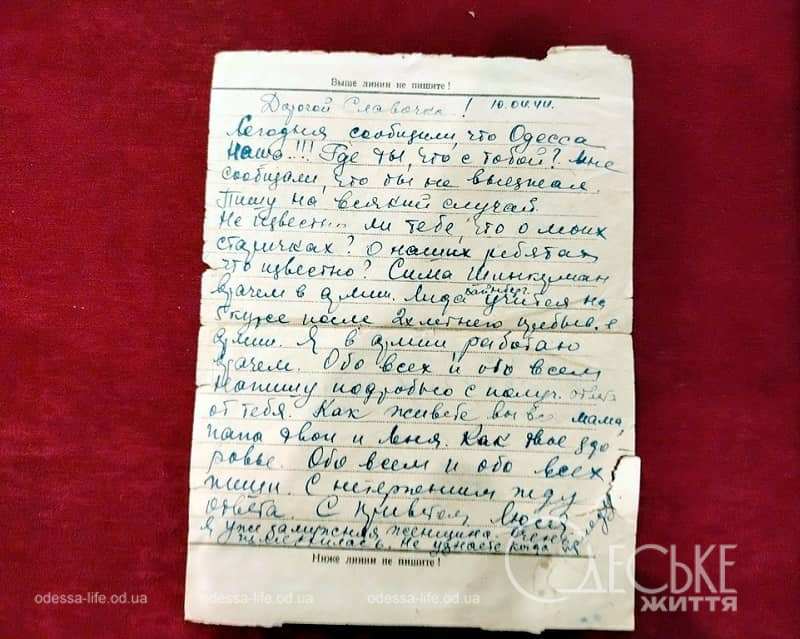 Выше линии не пишите!
Дорогой Славочка! 10.04.44.
Сегодня сообщили, что Одесса
наша!!! Где ты, что с тобой? Мне
сообщали, что ты не выезжал.
Пишу на всякий случай.
Не известно ли тебе, что о моих
старичках? О наших ребятах
что известно? Сима Шинкерман
врачем в армии. Лида учится на
курсе после 2х летнего пребыв. в
армии. Я в армии работаю
врачем. Обо всех и обо всем
напишу подробно с получ. ответа
от тебя. Как живете вы все мама,
папа твои и Люня. Как твое здо
ровье. Обо всем и обо всех
пиши. С нетерпением жду
ответа. С приветом Люся
Я уже замужняя женщина. Очень
изменилась. Не узнаете когда
Ниже линии не пишите!
odessa-life.od.ua
odessa-life.od.ua
odessa-life.od.ua
Одеське
життя